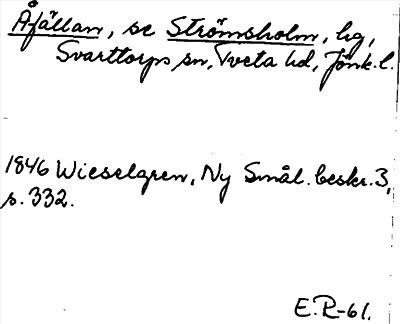 Åfällan, se Strömsholm, lg,
Svarttorps sn, Tveta hd, Jönk. l.
1846 Wieselgren, Ny Smål. beskr. 3,
s. 332.
E.R-61.